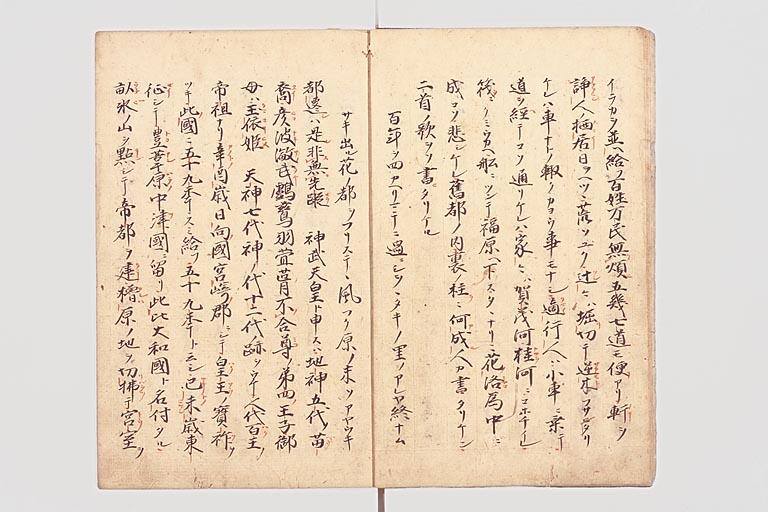 イラカヲ並ヘ給フ百姓万民無煩五畿七道モ便アリ軒ヲ
諍人ノ栖居日ヲヘツヽ荒ソユク辻々ハ堀切テ逆木
ケレハ車ナトノ輙クカヨウ事モナシ適行人ハ小車ニ乗テ
道ヲ経テコソ通リケレハ家々ハ賀茂河桂河ニコホチイレ
筏ニ舩ニツンテ福原ヘトテ下スタヽナリニ花洛為中ニ
成コソ悲シケレ舊都ノ内裏ノ柱ニ何成人カ書タリケン
二首ノ歌ヲソ書タリケル
百年ヲ四カヘリマテニ過シツヽタキノ里ノアレヤ終ナム
サキ出ル花ノ都ヲフリステヽ風フク原ノ末ソアヤウキ
都遷ハ是非無先蹤 神武天皇ト申スハ地神五代ノ苗
裔彦波激武鸕鶿羽葺不合尊ノ第四王子御
母ハ玉依姫 天神七代神ノ代十二代跡ヲウケ人代百王ノ
帝祖ナリ辛酉歳日向國宮崎郡ニシテ皇王ノ寳祚ヲ
ツキ此國ニ五十九年スミ給フ五十九年ト云シ己未歳東
征シテ豊葦原中津國ニ留リ此比大和國ト名付タル
畝火ノ山ヲ點シテ帝都ヲ建橿原ノ地ヲ切掃テ宮室ヲ